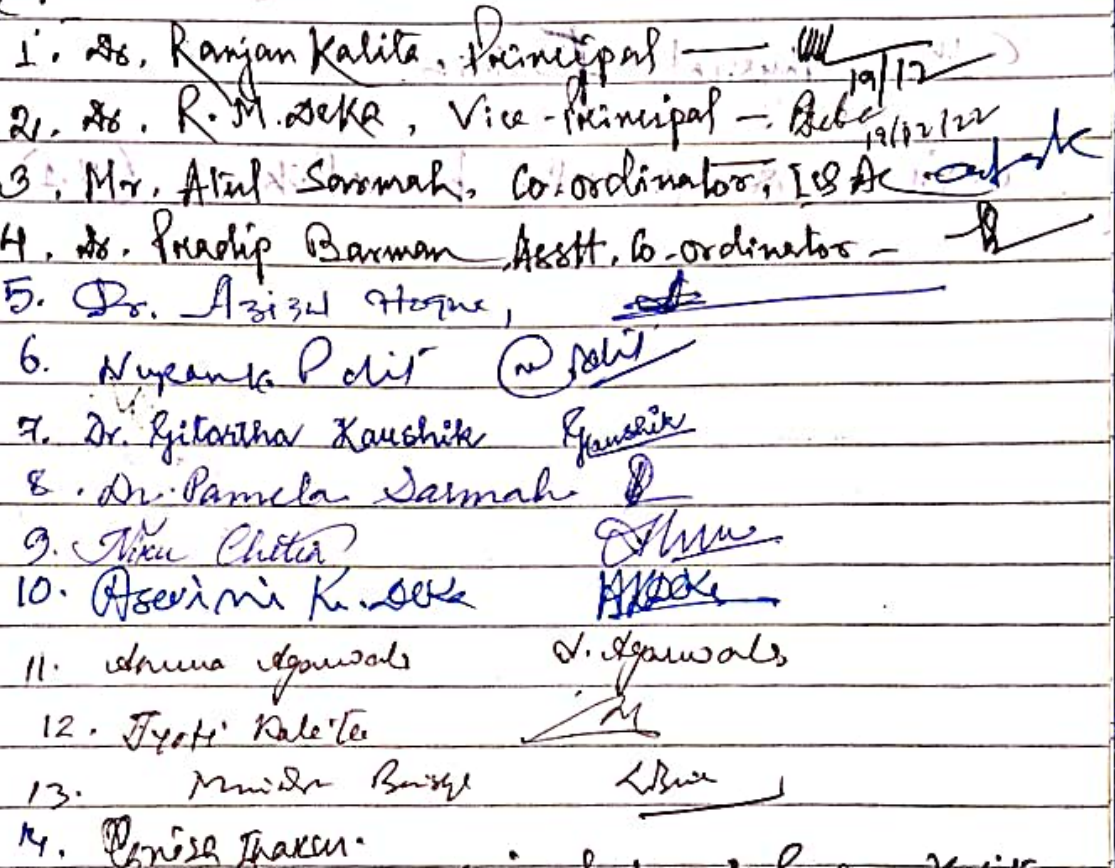 1. Dr. Ranjan Kalita, Principal — 19/12
2. Dr. R. M. Deka, Vice-Principal — Deka 19/12/22
3. Mr. Atul Sarmah, Co-ordinator, IQAC
4. Dr. Pradip Barman, Asstt. Co-ordinator —
5. Dr. Azizul Hoque,
6. Nupank Polit
7. Dr. Gitartha Kaushik Gkaushik
8. Dr. Pamela Sarmah
9. Niku Chetia
10. Aswini K. Deka AKDeka
11. Aruna Agarwala A. Agarwala
12. Jyoti Kalita
13.
14. Thakur.